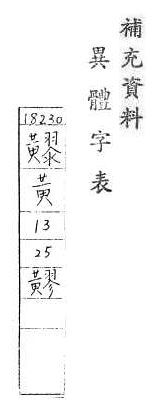 補充資料
異體字表
18230
黃
13
25